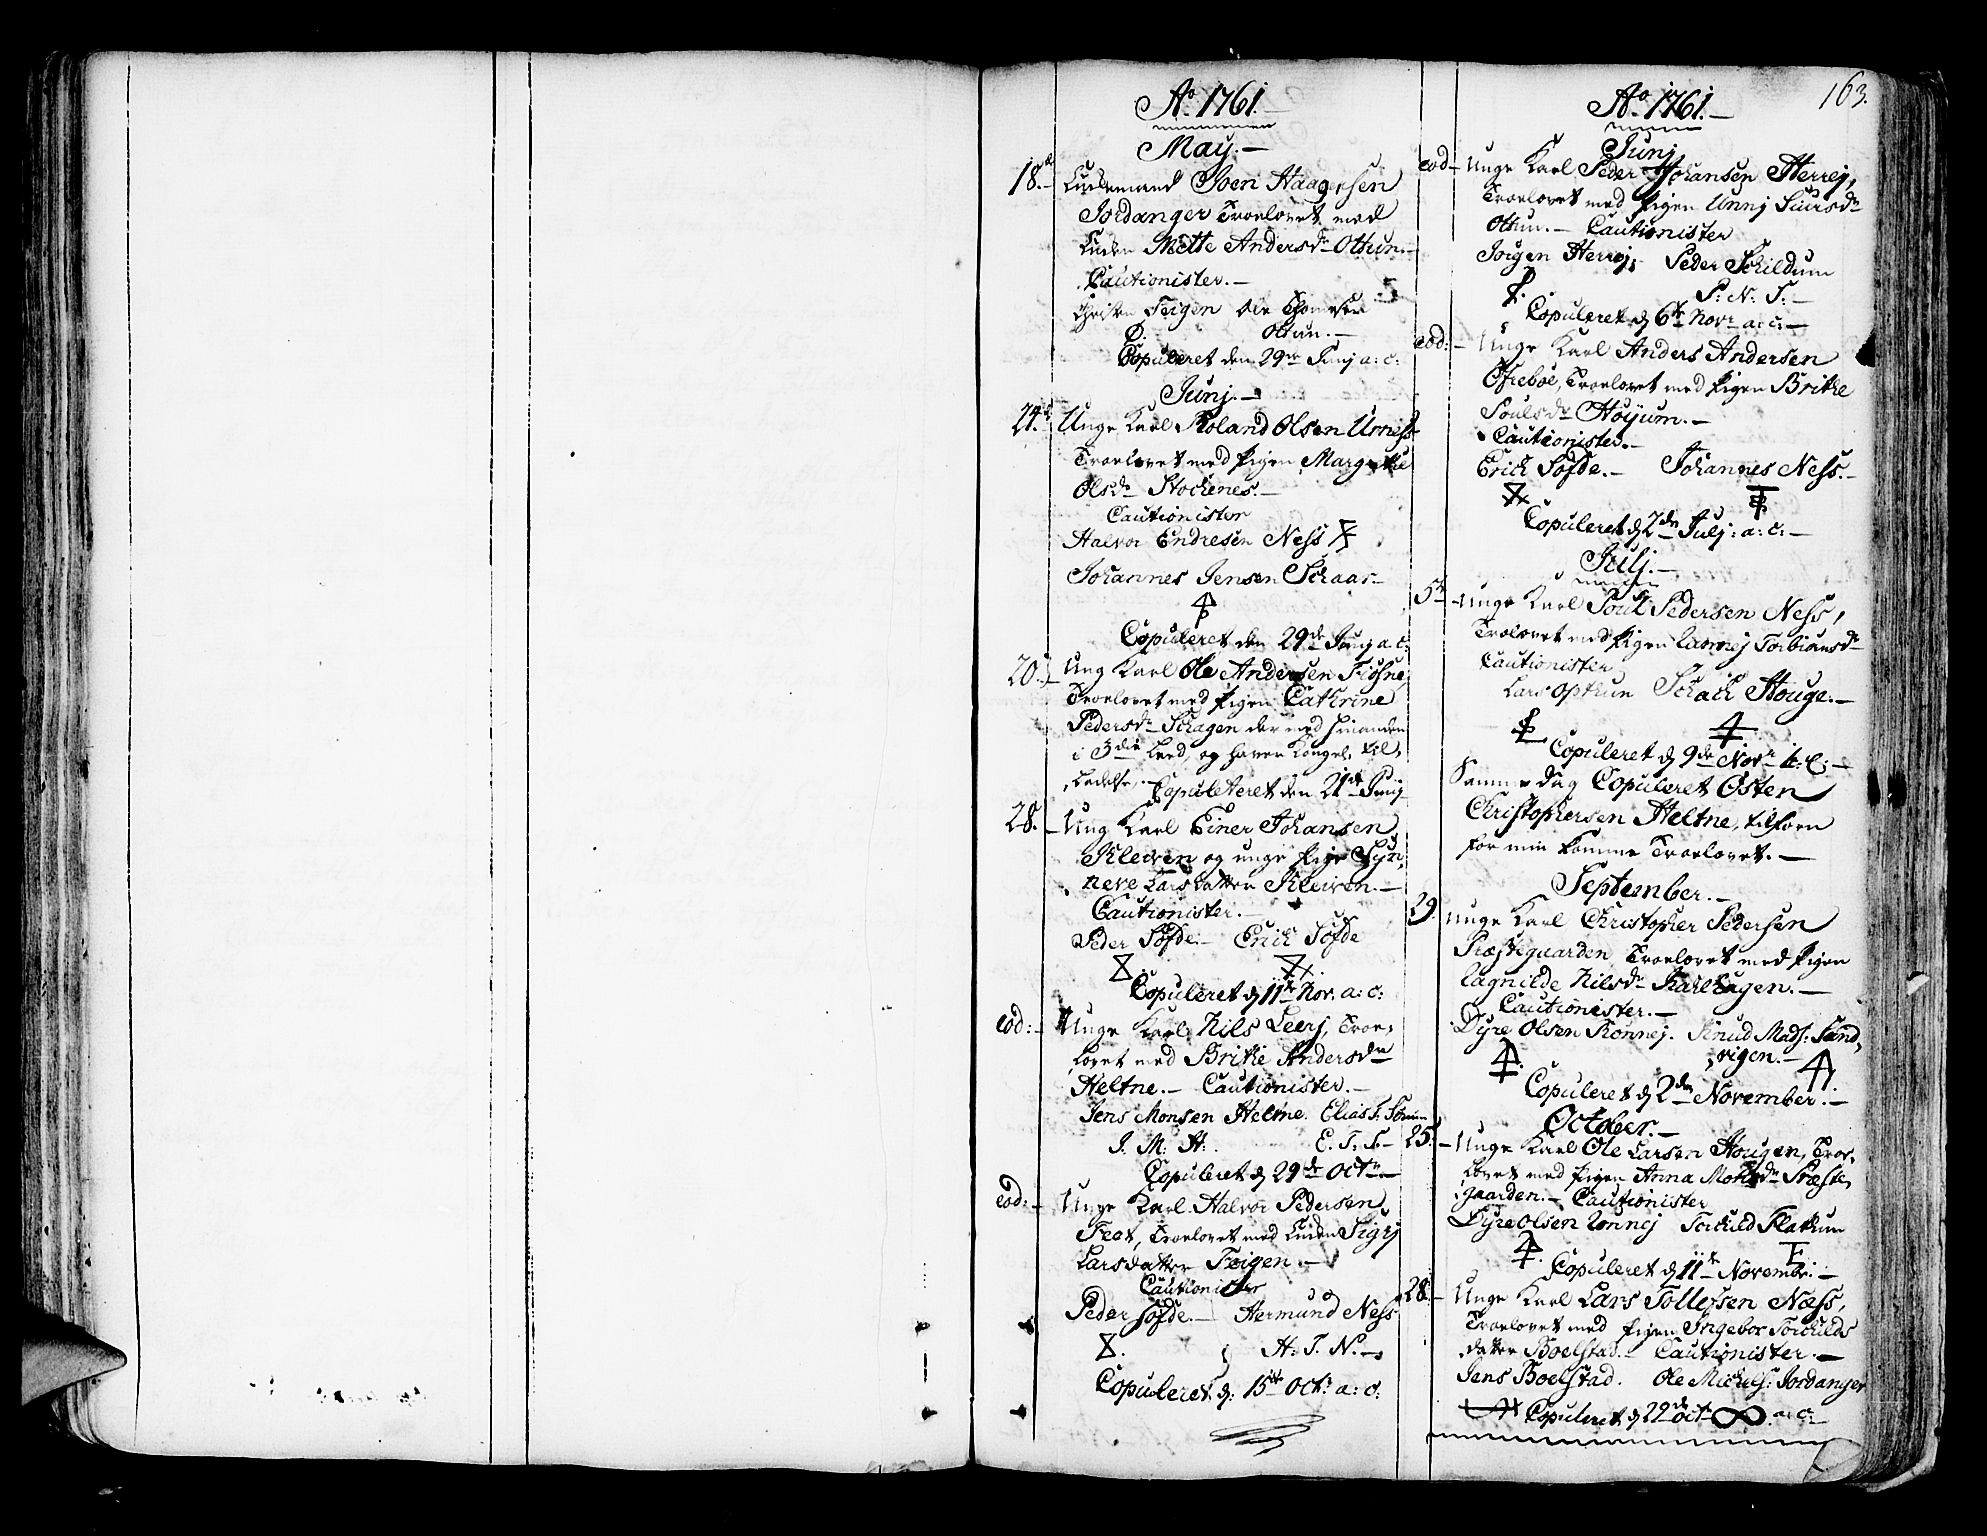 163.
Ao. 1761.
May.
18. Enkemand Joen Haagensen
Jordanger Troelovet med
Enken Mette Andersdr Othun.
Cautionister.
Feigen Ole Thomesen
Othun.
Copuleret den 29de Junj a: c:
Junj.
21. Unge Karl Roland Olsen Urness
Troelovet med Pigen Margrethe
Olsdr Stochenes.
Cautionister
Halvor Endresen Ness
Johannes Jensen Schaar
Copuleret den 29de Junj a. c:
20. Ung Karl Ole Andersen Flohne
Troelovet med Pigen Cathrine
Pedersdr Schagen der med hinanden
i 3die Leed, og haver Kongel. til,
ladelse. Copuleret den 21de Junj
28. Ung Karl Einer Johansen
Kleiven og unge Pige Syn,
neve Larsdatter Kleiven.
Cautionister.
Peder Sofde. Erich Sofde
Copuleret d 11te Nov. a: c:
eod: Unge Karl Nils Leerj, Troe,
lovet med Brithe Andersdr
Heltne. Cautionister.
Jens Monsen Heltne. Elias T.
J. M. H. E. T. S.
Copuleret d 29de Octr
eod: Unge Karl Halvor Pedersen
Feat, Troelovet med Enken Sigrj
Larsdatter Feigen.
Cautionister
Peder Sofde. Hermund Ness
H. T. N.
Copuleret d. 15de Octr a: c:
Ao. 1761.
Junj
eod Unge Karl Peder Johansen Herrej,
Troelovet med Pigen Unnj Siursdr
Othun. Cautionister
Jørgen Herrej, Peder Schildum
P. N. S.
Copuleret d 6te Novr a: c:
eod: Unge Karl Anders Andersen
Ofrebøe, Troelovet med Pigen Brithe
Poulsdr Høijum.
Cautionister.
Erich Sofde. Johannes Ness.
Copuleret d 2den Julj: a: c:
Julj.
5te Unge Karl Poul Pedersen Ness,
Troelovet med Pigen Torbiørnsdr
Cautionister
Lars Opthun Schach Houge.
Copuleret d 9de Novr a: c:
Samme Dag Copuleret Østen
Christophersen Heltne, tilforn
for min Komme Troelovet.
September.
29. Unge Karl Christopher Pedersen
Præsteguarden Troelovet med Pigen
Ragnilde Nilsdr Karlhagen.
Cautionister.
Dyre Olsen Rønnej. Knud Mads: Sand,
vigen.
Copuleret d 2den November.
October.
25. Unge Karl Ole Larsen Hougen, Troe,
lovet med Pigen Anna Præste,
gaarden. Cautionister
Dyre Olsen Rønnej Torchild Flathum
Copuleret d 11te Novembr:
28. Unge Karl Lars Tollefsen Næss,
Troelovet med Pigen Ingebor Torchilds
datter Boelstad. Cautionister.
Jens Boelstad. Ole Michels: Jordanger
Copuleret d 29de Octr a: c: